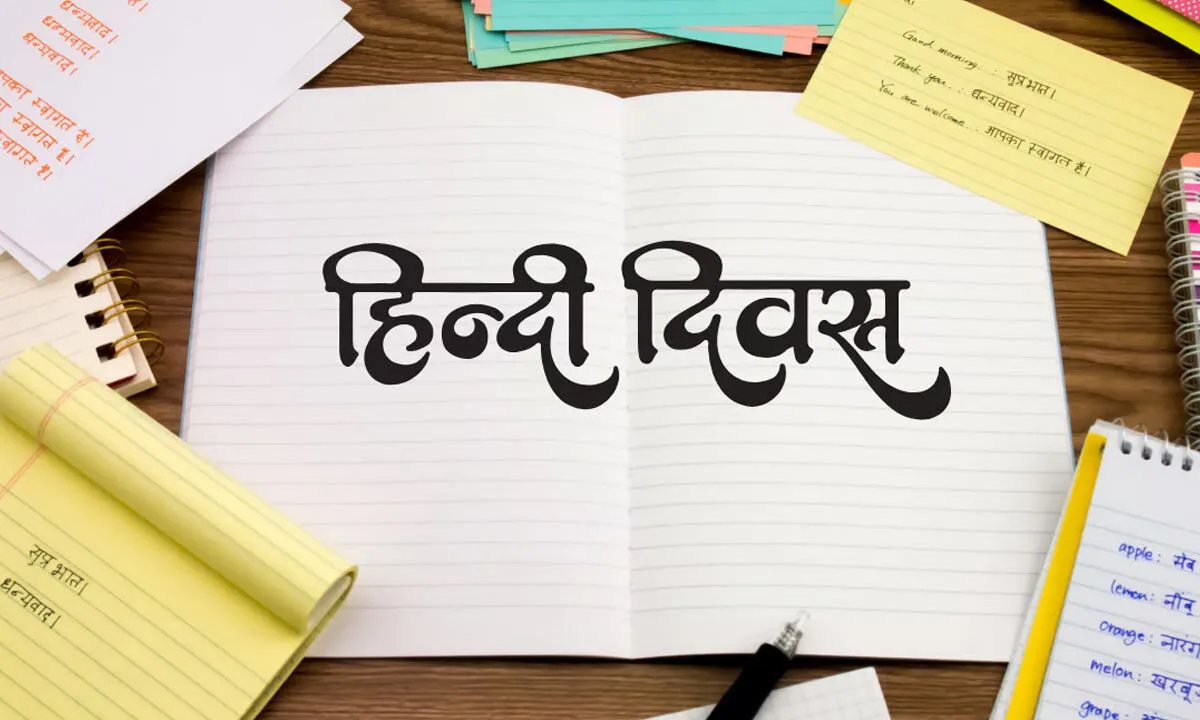 धन्यवाद।
धन्यवाद।
धन्यवाद।
स्वागत है।
स्वागत है।
स्वागत है।
Good morning. : सुप्रभात।
Thank you. : धन्यवाद।
You are welcome. : आपका स्वागत है।
हिन्दी दिवस
सुप्रभात।
धन्यवाद।
apple: सेब
lemon: नींबू
orange: नारंग
melon: खरबू
grape: अं